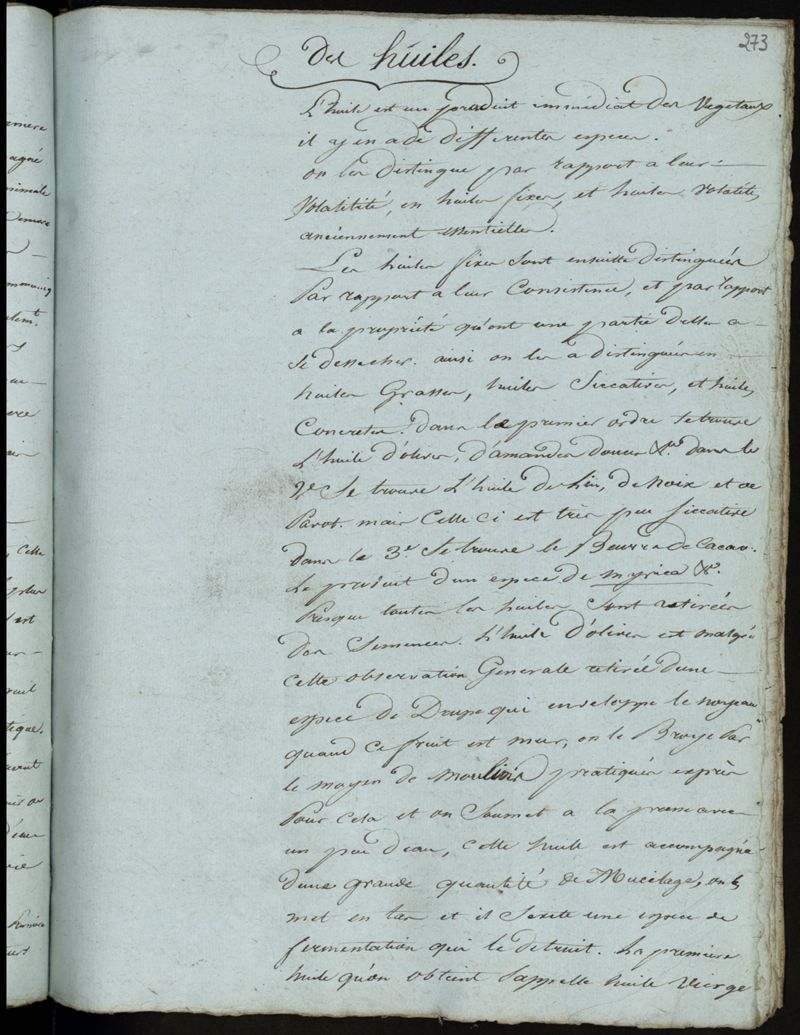 273
des huiles.
L'huile est un produit immédiat des Vegetaux
il y en a de differentes especes.
on les distingue par rapport a leur
Volatilité, en huiles fixes, et huiles volatiles,
anciennement essentielles.
Les huiles fixes sont ensuitte distinguées
Par rapport a leur Consistence, et par rapport
a la propriété qu'ont une partie d'elles a
se dessecher. ainsi on les a distinguées en
huiles Grasses, huiles Siccatives, et huiles
Concretes. dans le premier ordre se trouve
L'huile d'olives, d'amandes douces &c. dans le
2e Se trouve L'huile de Lin, de Noix et de
Pavot. mais Celle Ci est très peu Siccative
dans le 3e. Se trouve le Beurre de Cacao.
Le produit d'un espece de myrica &c.
Presque toutes les huiles Sont retirées
des Semences. L'huile d'olives est malgré
cette observation Generale retirée d'une
espece de Drupe qui enveloppe le noyau
quand Ce fruit est mur, on le Broye Par
le moyen de moulins pratiqués exprès
Pour cela et on Soumet a la presse avec
un peu d'eau, cette huile est accompagnée
d'une grande quantité de Mucilage, on la
met en tas et il S'exite une espece de
fermentation qui le detruit. La premiere
huile qu'on obtient S'appelle huile Vierge